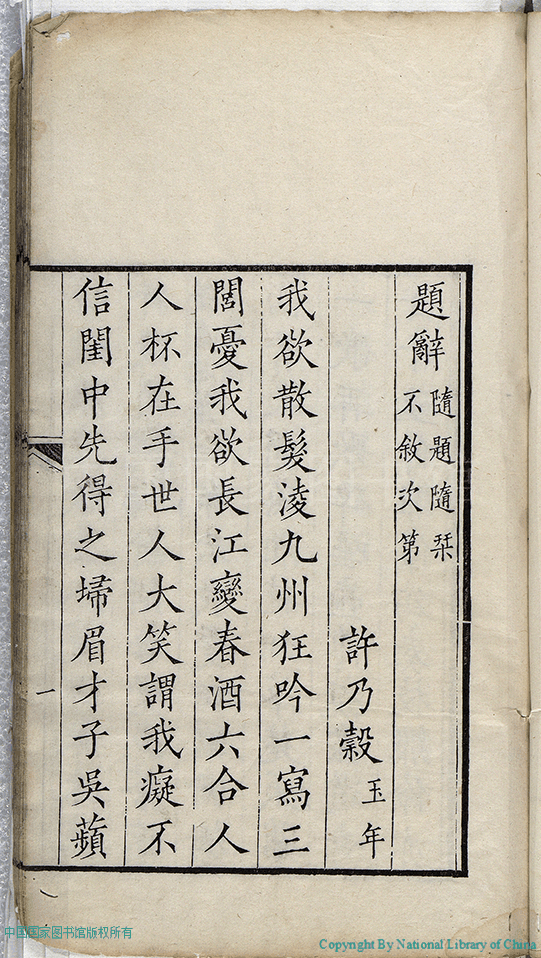 題辭 隨題隨栞
不敘次第
許乃榖 玉年
我欲散髮淩九州狂吟一寫三
閭憂我欲長江變春酒六合人
人杯在手世人大笑謂我癡不
信閨中先得之埽眉才子吳蘋
一
中国国家图书馆版权所有
Copyright By National Library of China